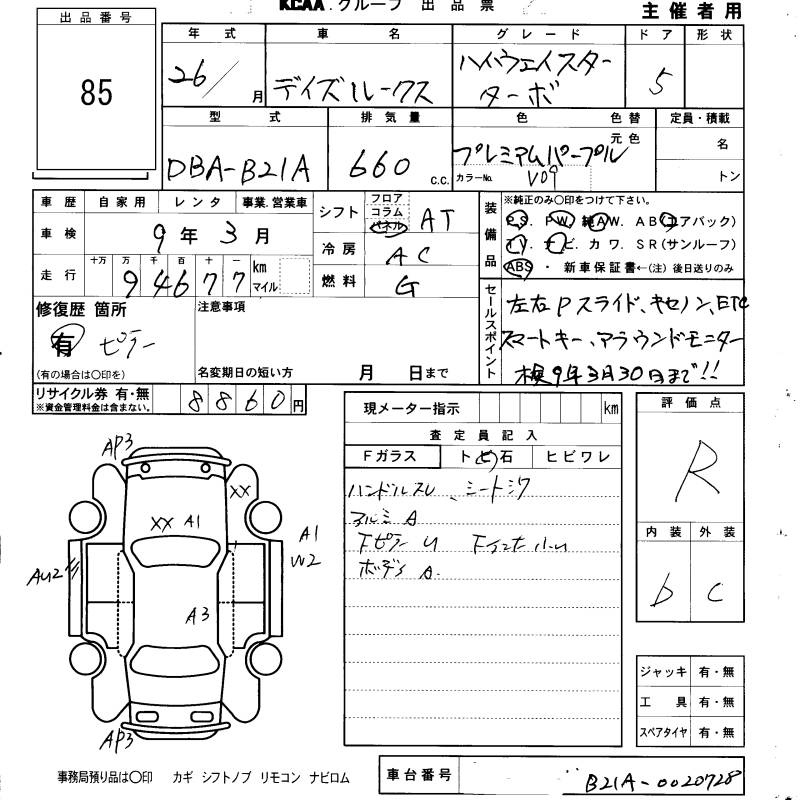 KCAA.グループ 出品票
主催者用
出品番号
85
年式 車名 グレード ドア 形状
26/ 月 デイズルークス ハイウェイスター ターボ 5
型式 排気量 色 色替 定員・積載
元色
DBA-B21A 660 c.c. プレミアムパープル 名
カラーNo. V09 トン
車歴 自家用 レンタ 事業.営業車
車検 9年3月
走行 十万 万 千 百 十 一
94677 km マイル
シフト フロア コラム パネル AT
冷房 AC
燃料 G
装備品
※純正のみ〇印をつけて下さい。
P.S. P.W. 純A.W. A.B.(エアバック)
T.V. ナビ. カワ. S.R(サンルーフ)
ABS ・ 新車保証書←(注)後日送りのみ
セールスポイント
左右Pスライド、キセノン、ETC
スマートキー、アラウンドモニター
検9年3月30日まで!!
修復歴 箇所
有 ピラー
(有の場合は〇印を)
注意事項
名変期日の短い方 月 日まで
リサイクル券 有・無
※資金管理料金は含まない。
8860円
現メーター指示 km
査定員記入
Fガラス ト(ビ)石 ヒビワレ
ハンドルスレ、シートシワ
アルミ A
ボデー A.
評価点
R
内装 外装
b C
ジャッキ 有・無
工具 有・無
スペアタイヤ 有・無
AP3
XX
XX A1
A1
W2
AU2
A3
AP3
事務局預り品は〇印 カギ シフトノブ リモコン ナビロム
車台番号 B21A-0020728